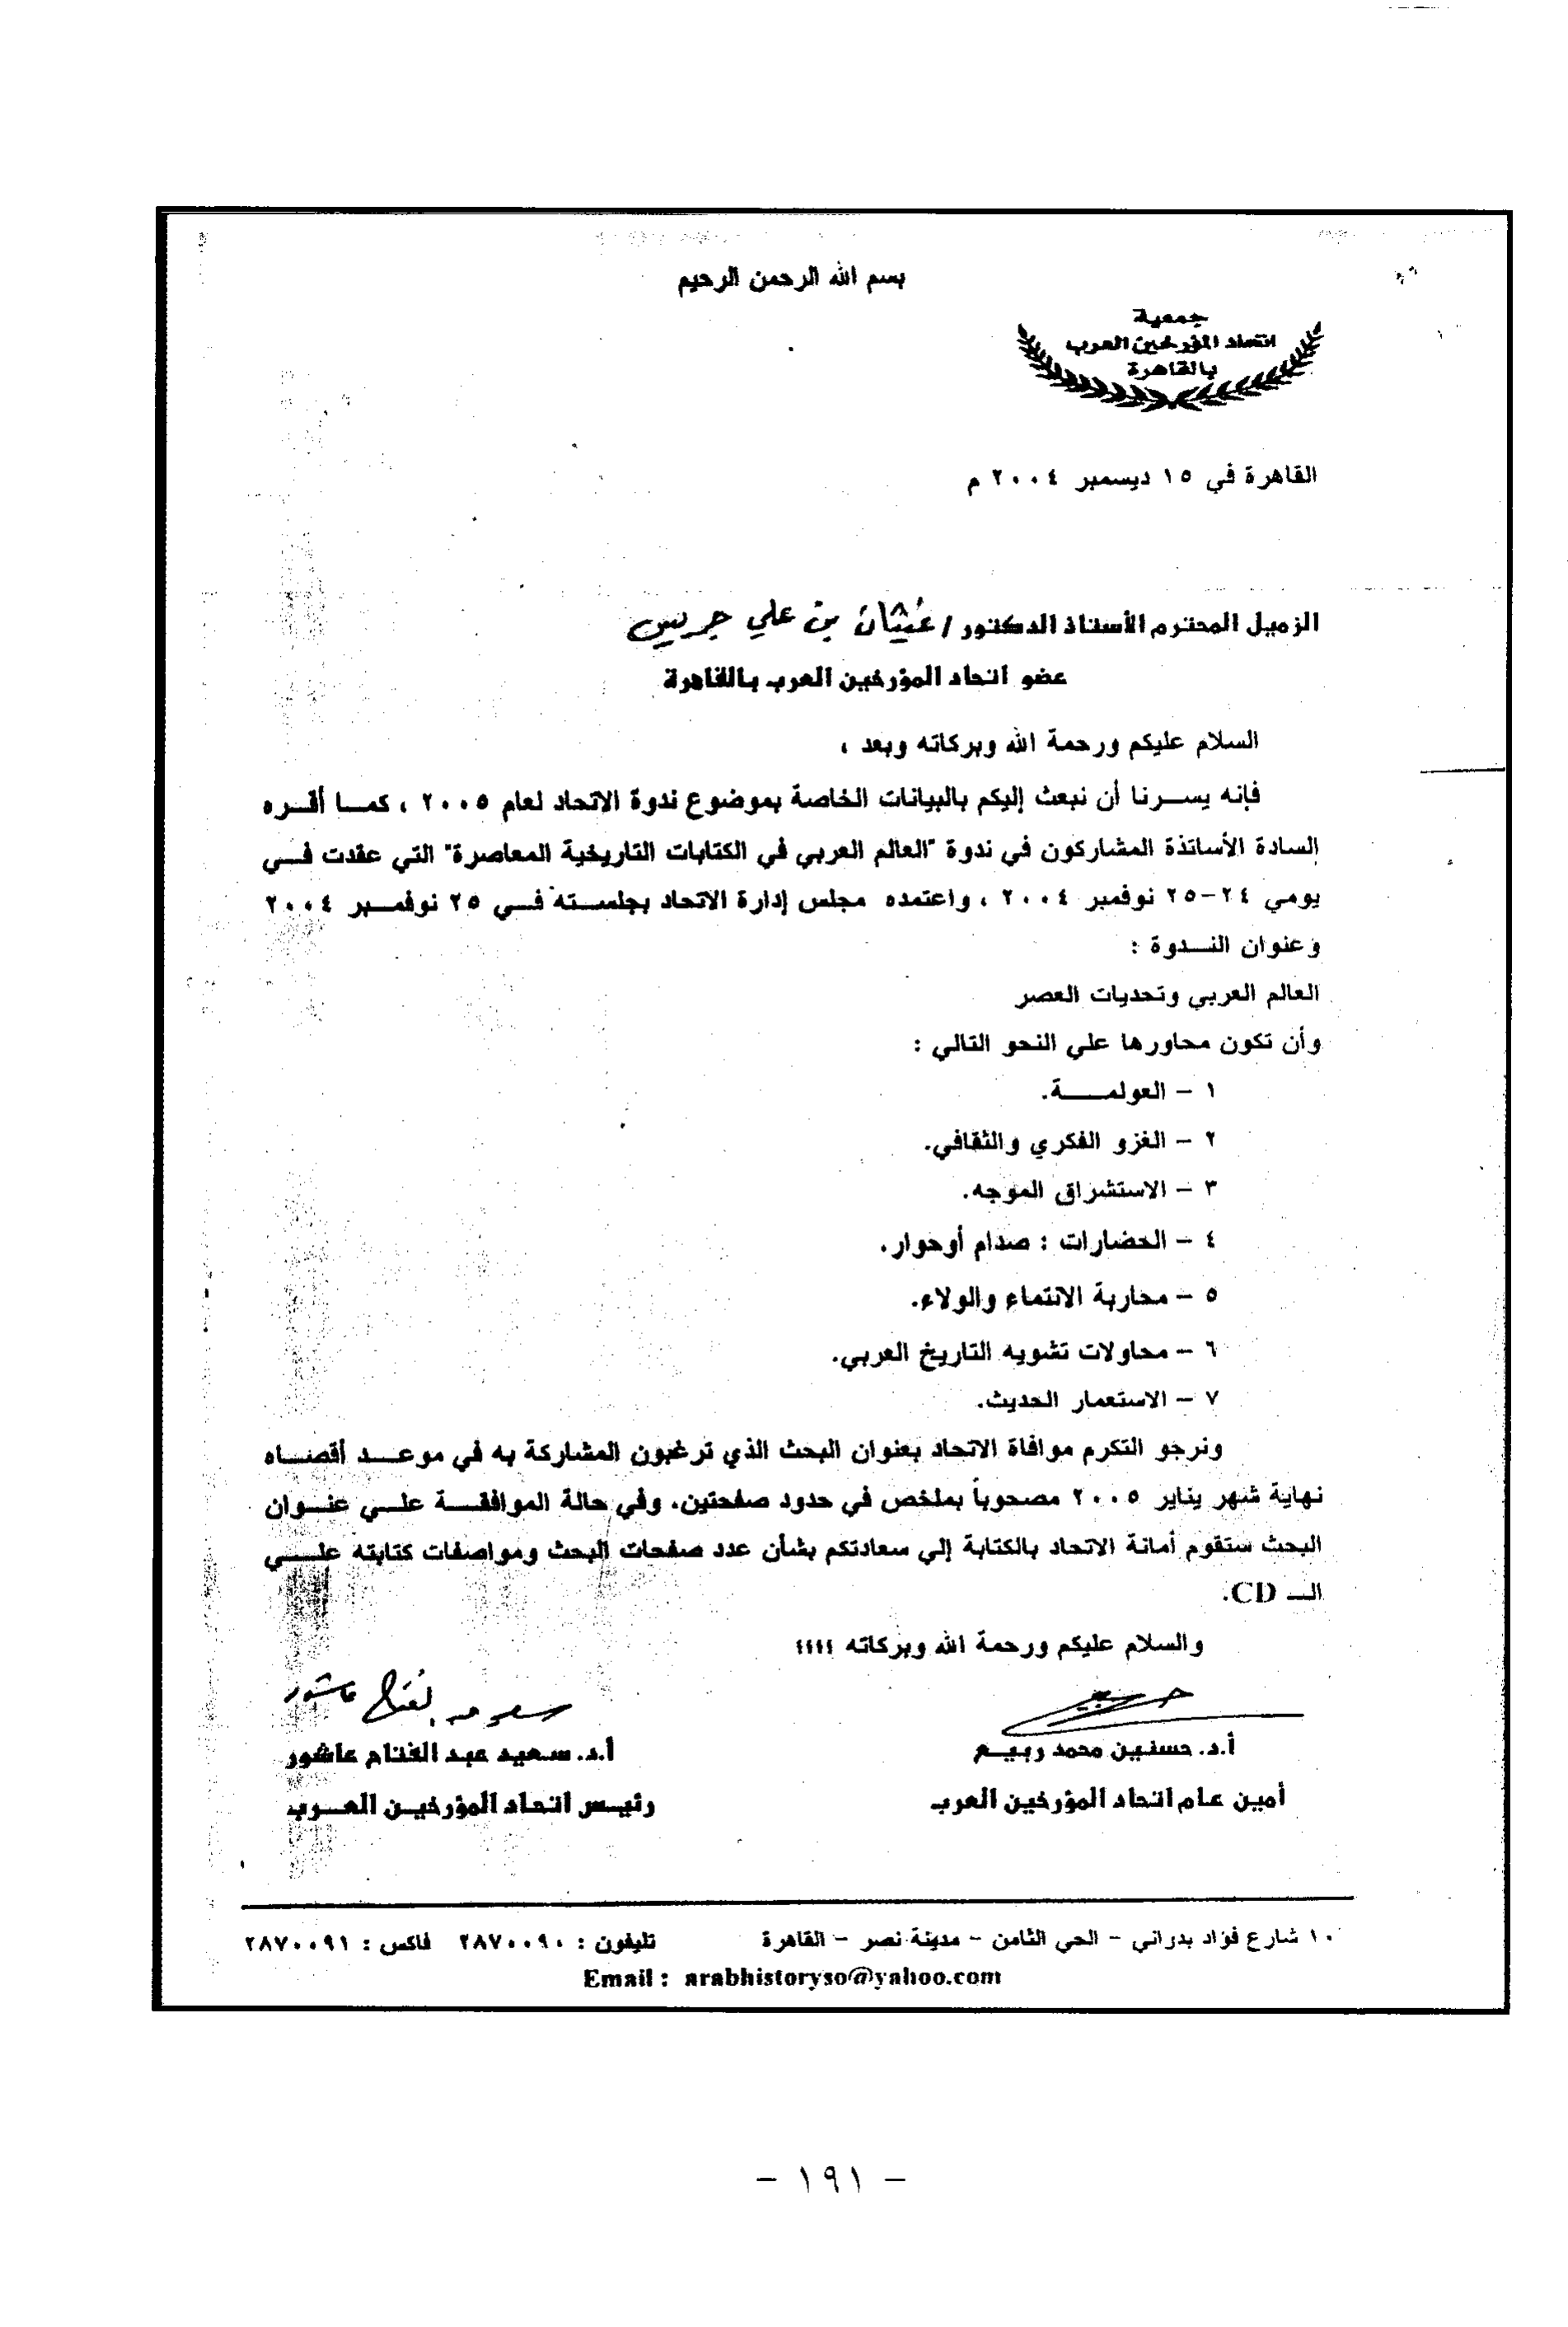 بسم الله الرحمن الرحيم
جمعية
اتحاد المؤرخين العرب
بالقاهرة
القاهرة في ١٥ ديسمبر ٢٠٠٤ م
الزميل المحترم الأستاذ الدكتور / غيثان بن علي جريس
عضو اتحاد المؤرخين العرب بالقاهرة
السلام عليكم ورحمة الله وبركاته وبعد ،
فإنه يســرنا أن نبعث إليكم بالبيانات الخاصة بموضوع ندوة الاتحاد لعام ٢٠٠٥ ، كمــا أقــره
السادة الأساتذة المشاركون في ندوة "العالم العربي في الكتابات التاريخية المعاصرة" التي عقدت فــي
يومي ٢٤-٢٥ نوفمبر ٢٠٠٤ ، واعتمده مجلس إدارة الاتحاد بجلســته فــي ٢٥ نوفمــبر ٢٠٠٤
وعنوان النــدوة :
العالم العربي وتحديات العصر
وأن تكون محاورها علي النحو التالي :
١ - العولمــــة.
٢ - الغزو الفكري والثقافي.
٣ - الاستشراق الموجه.
٤ - الحضارات : صدام أوحوار.
٥ - محاربة الانتماء والولاء.
٦ - محاولات تشويه التاريخ العربي.
٧ - الاستعمار الحديث.
ونرجو التكرم موافاة الاتحاد بعنوان البحث الذي ترغبون المشاركة به في موعــد أقصــاه
نهاية شهر يناير ٢٠٠٥ مصحوباً بملخص في حدود صفحتين. وفي حالة الموافقــة علــي عنــوان
البحث ستقوم أمانة الاتحاد بالكتابة إلي سعادتكم بشأن عدد صفحات البحث ومواصفات كتابته علــــي
الــ CD.
والسلام عليكم ورحمة الله وبركاته ،،،،
سعيد عبد الفتاح عاشور
أ.د. حسنين محمد ربيــع
أ.د. سعيد عبد الفتاح عاشور
أمين عام اتحاد المؤرخين العرب
رئيــس اتحاد المؤرخيــن العــرب
١٠ شارع فؤاد بدراني - الحي الثامن - مدينة نصر - القاهرة تليفون : ٢٨٧٠٠٩٠ فاكس : ٢٨٧٠٠٩١
Email : arabhistoryso@yahoo.com
- ١٩١ -